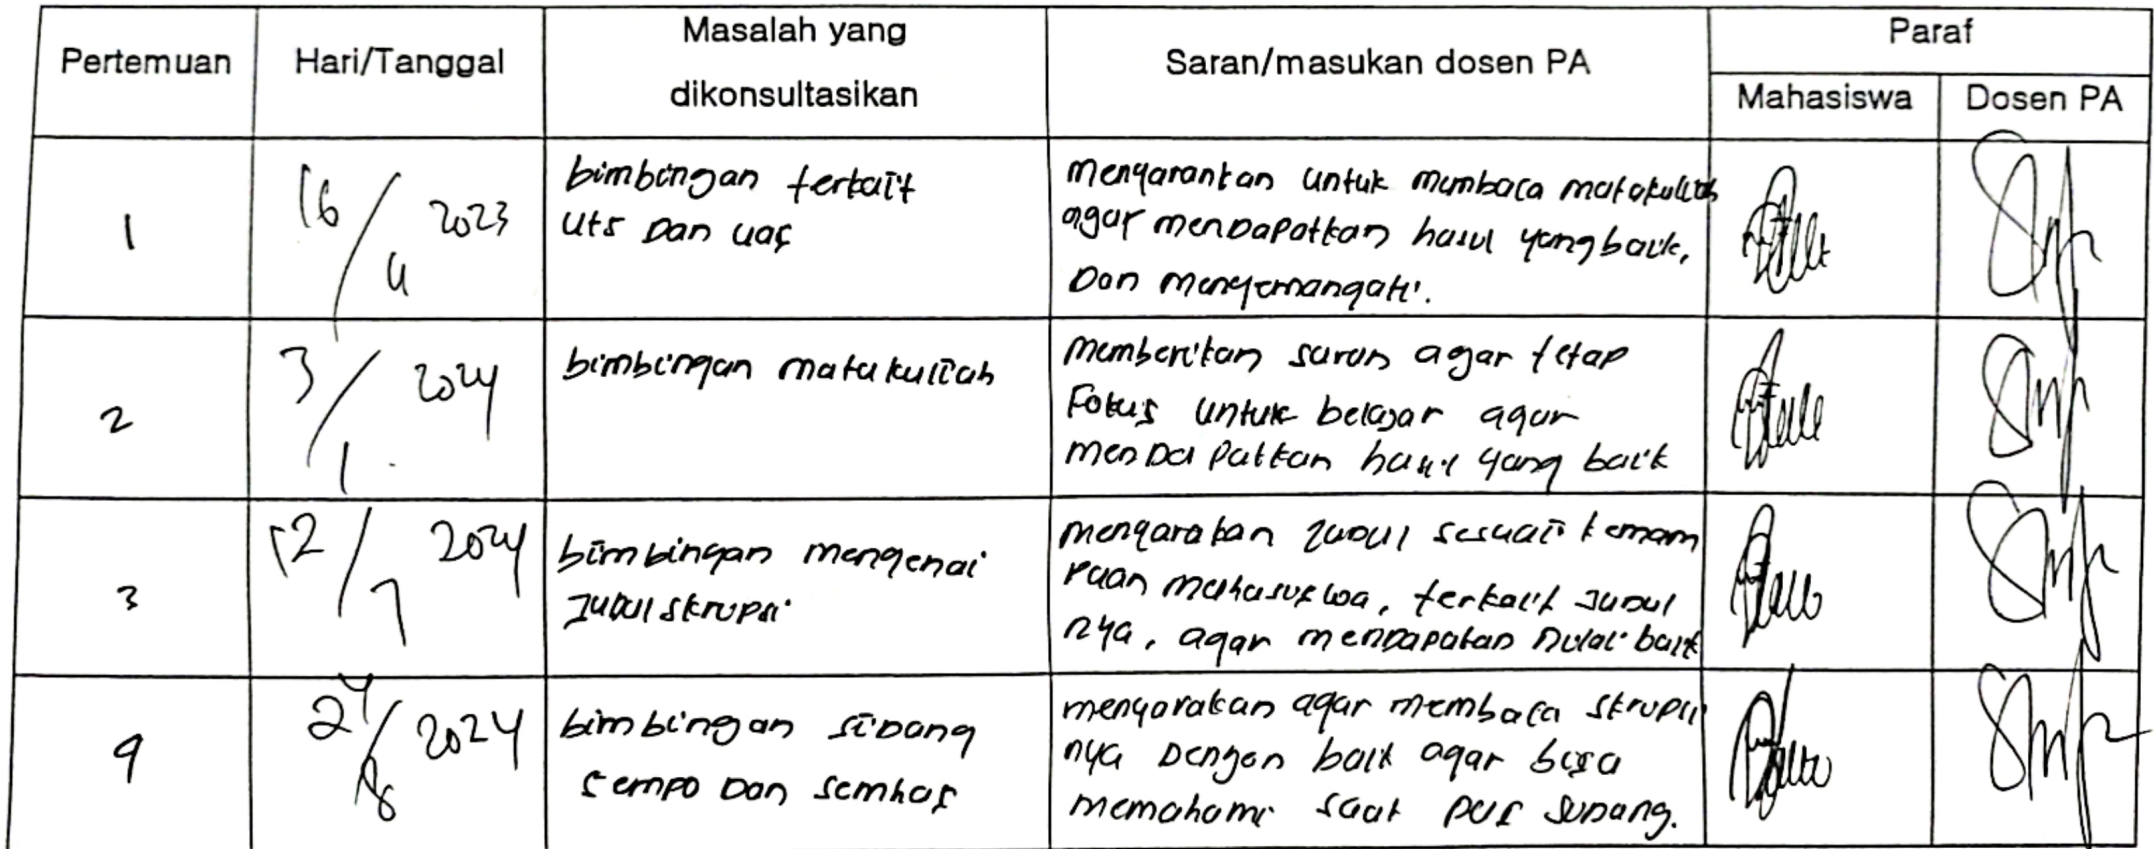 Pertemuan
Hari/Tanggal
Masalah yang
dikonsultasikan
Saran/masukan dosen PA
Paraf
Mahasiswa
Dosen PA
1
16/4 2023
bimbingan terkait
uts Dan uas
menyarankan untuk membaca matakuliah
agar menDapatkan hasil yang baik,
Dan menyemangati.
2
3/1 2024
bimbingan matakuliah
memberikan saran agar tetap
Fokus untuk belajar agar
menDapatkan hasil yang baik
3
12/7 2024
bimbingan mengenai
JuDul skripsi
mengarakan JuDul sesuaii kemam
puan mahasiswa, terkait JuDul
nya, agar menDapatan nilai baik
4
24/8 2024
bimbingan siDang
sempo Dan semhas
menyarakan agar membaca skripsi
nya Dengan baik agar bisa
memahami saat pas siDang.